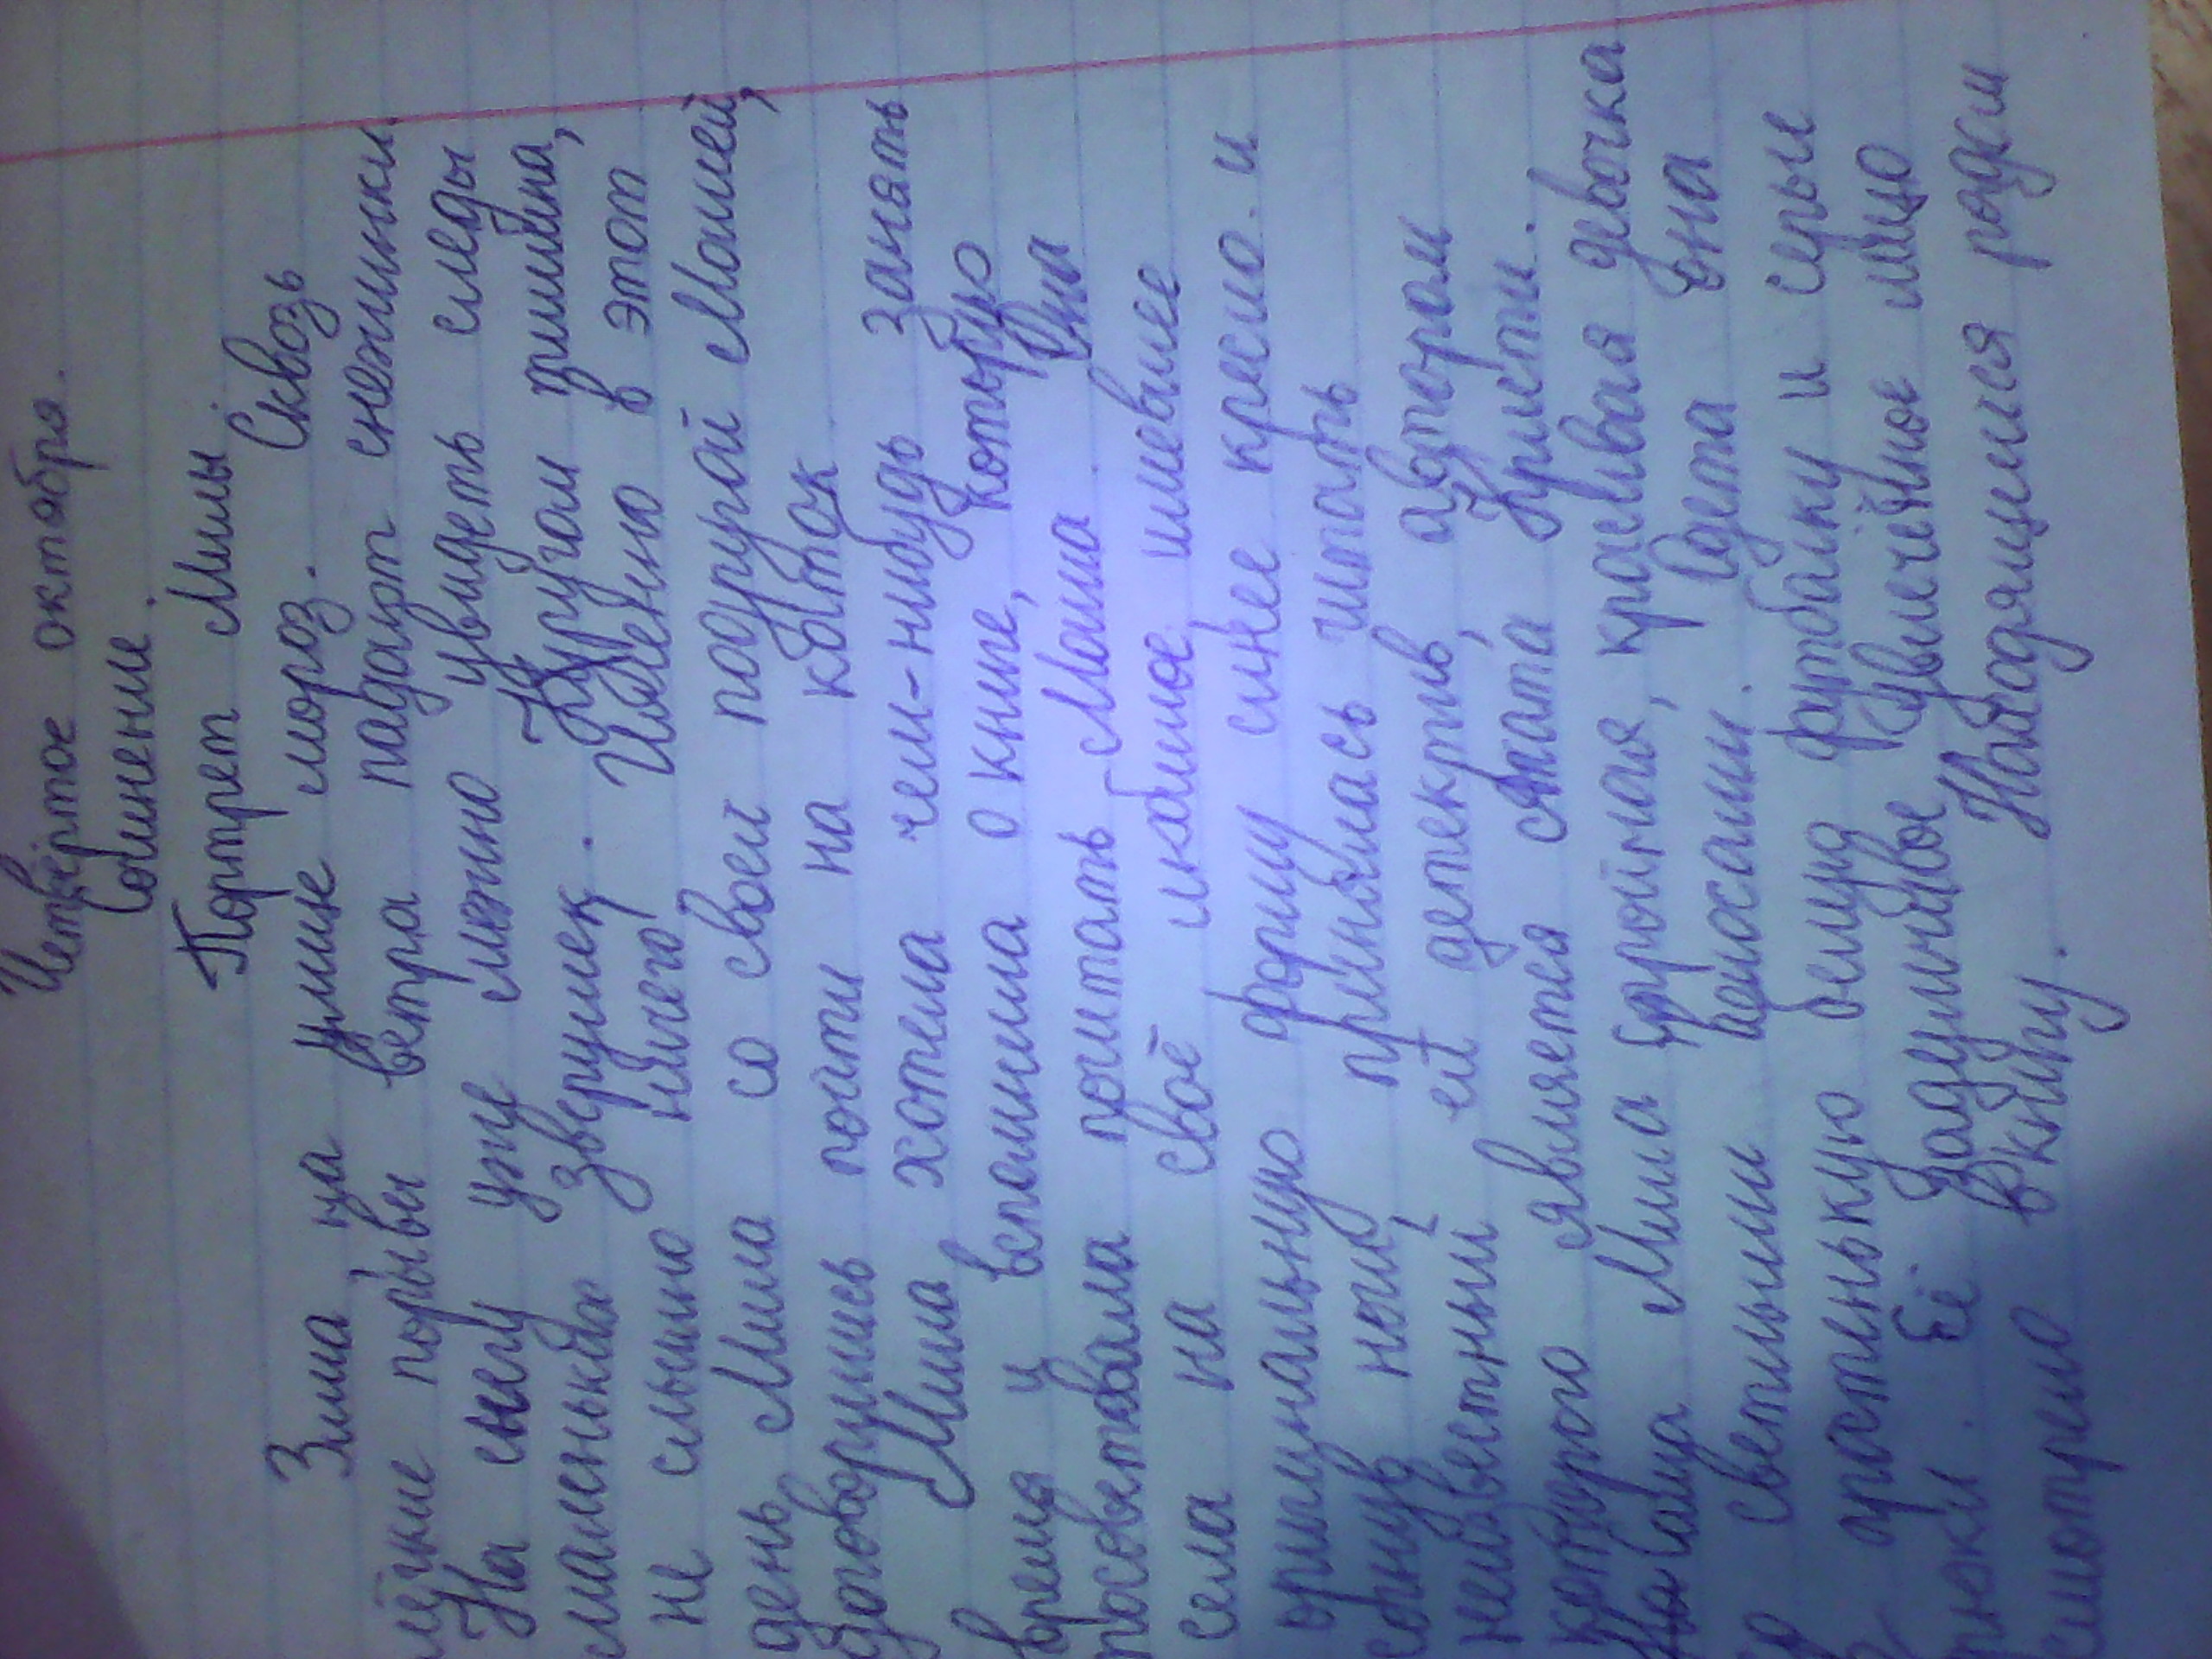 Четвёртое октября.
Сочинение.
Портрет Милы.
Зима на улице мороз. Сквозь
лёгкие порывы ветра падают снежинки.
На снегу уже можно увидеть следы
маленьких зверушек. Кругом тишина,
не слышно ничего. Именно в этот
день Мила со своей подругой Машей,
договорились пойти на каток
Мила хотела чем-нибудь занять
время и вспомнила о книге, которую
посоветовала почитать Маша. Она
села на своё любимое имевшее
оригинальную форму синее кресло. и
согнув ноги, принялась читать
неизвестный ей детектив, автором
которого является Агата Кристи.
Мила стройная, красивая девочка
со светлыми волосами. Одета она
в простенькую белую футболку и серые
брюки. Её задумчивое увлечённое лицо
смотрело в книгу. Находящимся рядом